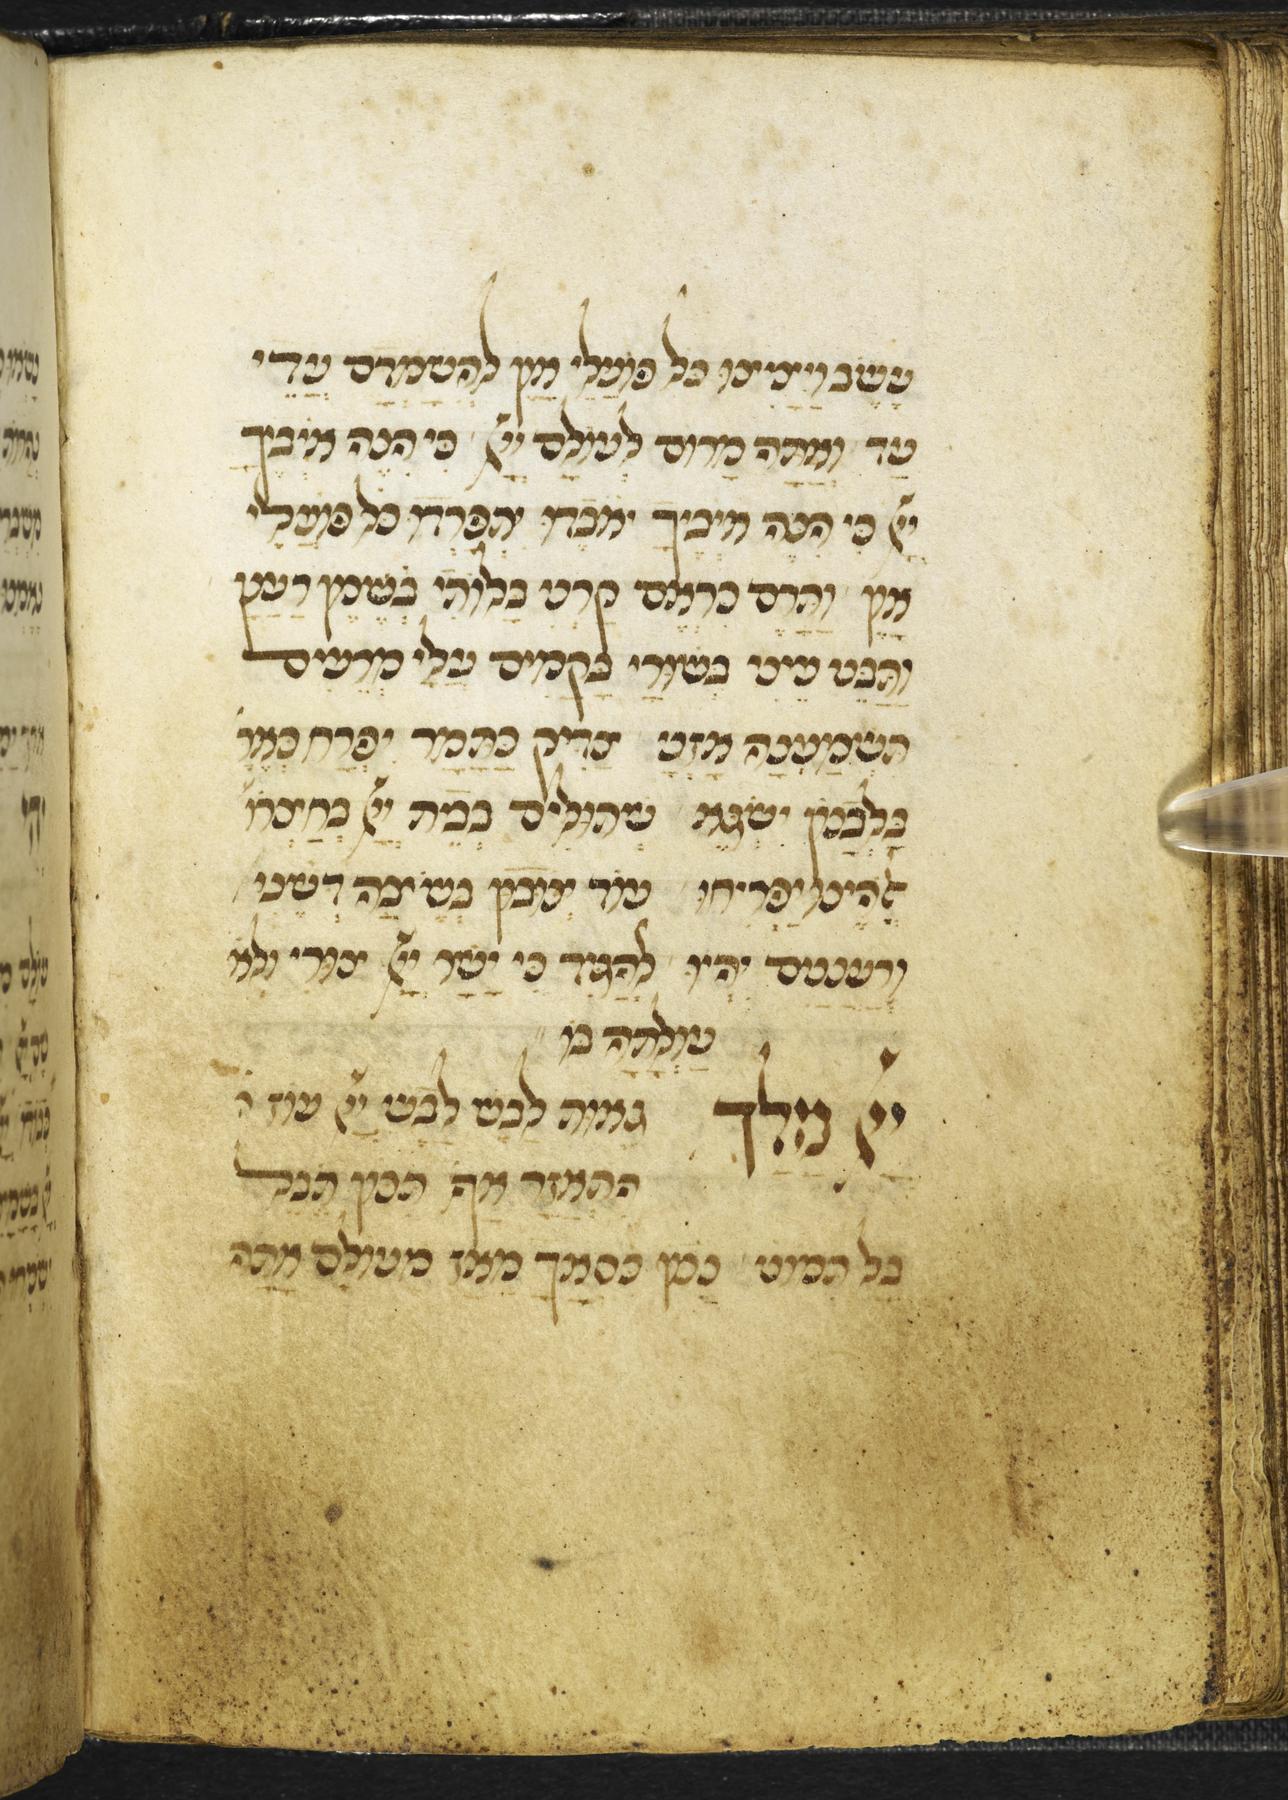 עֵשֶׂב וַיָצִיצוּ כל פועלי און להשמדם עדי
עד ואתה מרום לעולם יי׳ כי הנה אויביך
יי׳ כי הנה אויביך יאבדו יתפרדו כל פועלי
און ותרם כראם קרני בלותי בשמן רענן
ותבט עיני בשורי בקמים עלי מרעים
תשמענה אזני צדיק כתמר יפרח כארז
בלבנון ישגא שתולים בבית יי׳ בחצרו׳
אלהינו יפריחו עוד ינובון בשיבה דשנים
ורעננים יהיו להגיד כי ישר יי׳ צורי ולא
עולתה בו
יי׳ מלך גאות לבש לבש יי׳ עוז
התאזר אף תכון תבל
בל תמוט נכון כסאך מאז מעולם אתה